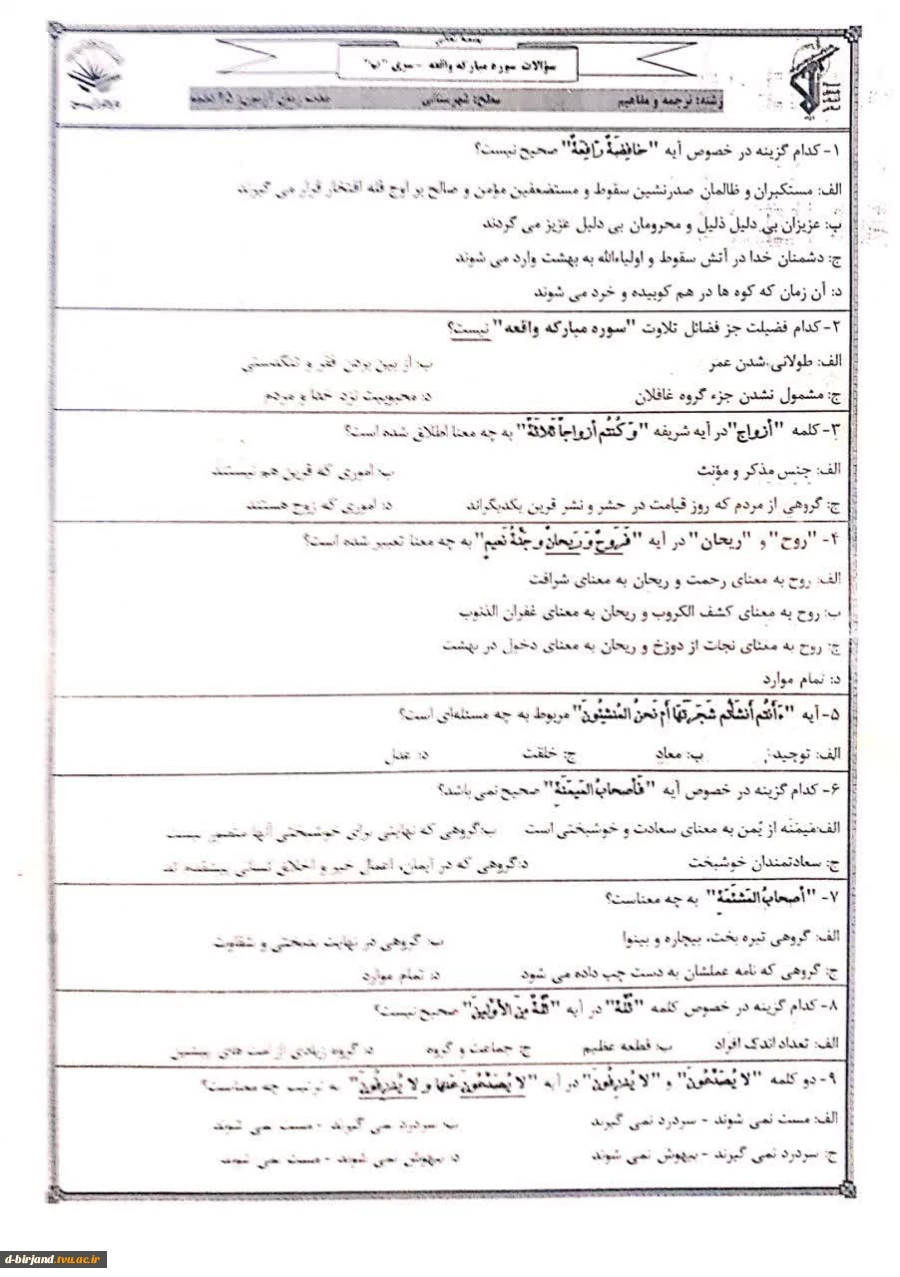 بسمه تعالی
سؤالات سوره مبارکه واقعه - سری "ب"
رشته: ترجمه و مفاهیم سطح: شهرستانی مدت زمان آزمون: ۲۵ دقیقه
۱- کدام گزینه در خصوص آیه "خافِضَةٌ رافِعَةٌ" صحیح نیست؟
الف: مستکبران و ظالمان صدرنشین سقوط و مستضعفین مؤمن و صالح بر اوج قله افتخار قرار می گیرند
ب: عزیزان بی دلیل ذلیل و محرومان بی دلیل عزیز می گردند
ج: دشمنان خدا در آتش سقوط و اولیاءالله به بهشت وارد می شوند
د: آن زمان که کوه ها در هم کوبیده و خرد می شوند
۲- کدام فضیلت جز فضائل تلاوت "سوره مبارکه واقعه" نیست؟
الف: طولانی شدن عمر ب: از بین بردن فقر و تنگدستی
ج: مشمول نشدن جزء گروه غافلان د: محبوبیت نزد خدا و مردم
۳- کلمه "أزواج" در آیه شریفه "وَ کُنتُم أزواجاً ثَلاثَةً" به چه معنا اطلاق شده است؟
الف: جنس مذکر و مؤنث ب: اموری که قرین هم نیستند
ج: گروهی از مردم که روز قیامت در حشر و نشر قرین یکدیگراند د: اموری که زوج هستند
۴- "روح" و "ریحان" در آیه "فَرَوحٌ وَ رَیحانٌ و جَنَّةُ نَعیمٍ" به چه معنا تعبیر شده است؟
الف: روح به معنای رحمت و ریحان به معنای شرافت
ب: روح به معنای کشف الکروب و ریحان به معنای غفران الذنوب
ج: روح به معنای نجات از دوزخ و ریحان به معنای دخول در بهشت
د: تمام موارد
۵- آیه "ءَأَنتُم أَنشَأتُم شَجَرَتَها أَم نَحنُ المُنشِئُونَ" مربوط به چه مسئله‌ای است؟
الف: توحید ب: معاد ج: خلقت د: عدل
۶- کدام گزینه در خصوص آیه "فَأصحابُ المَیمَنَةِ" صحیح نمی باشد؟
الف: مَیمَنَه از یُمن به معنای سعادت و خوشبختی است ب: گروهی که نهایتی برای خوشبختی آنها متصور نیست
ج: سعادتمندان خوشبخت د: گروهی که در ایمان، اعمال خیر و اخلاق نسانی پیشقدم اند
۷- "أصحابُ المَشئَمَةِ" به چه معناست؟
الف: گروهی تیره بخت، بیچاره و بینوا ب: گروهی در نهایت بدبختی و شقاوت
ج: گروهی که نامه عملشان به دست چپ داده می شود د: تمام موارد
۸- کدام گزینه در خصوص کلمه "ثُلَّةٌ" در آیه "ثُلَّةٌ مِنَ الأَوَّلینَ" صحیح نیست؟
الف: تعداد اندک افراد ب: قطعه عظیم ج: جماعت و گروه د: گروه زیادی از امت های پیشین
۹- دو کلمه "لا یُصَدَّعُونَ" و "لا یُنزِفُونَ" در آیه "لا یُصَدَّعُونَ عَنها و لا یُنزِفُونَ" به ترتیب چه معناست؟
الف: مست نمی شوند - سردرد نمی گیرند ب: سردرد می گیرند - مست می شوند
ج: سردرد نمی گیرند - بیهوش نمی شوند د: بیهوش نمی شوند - مست می شوند
d-birjand.tvu.ac.ir